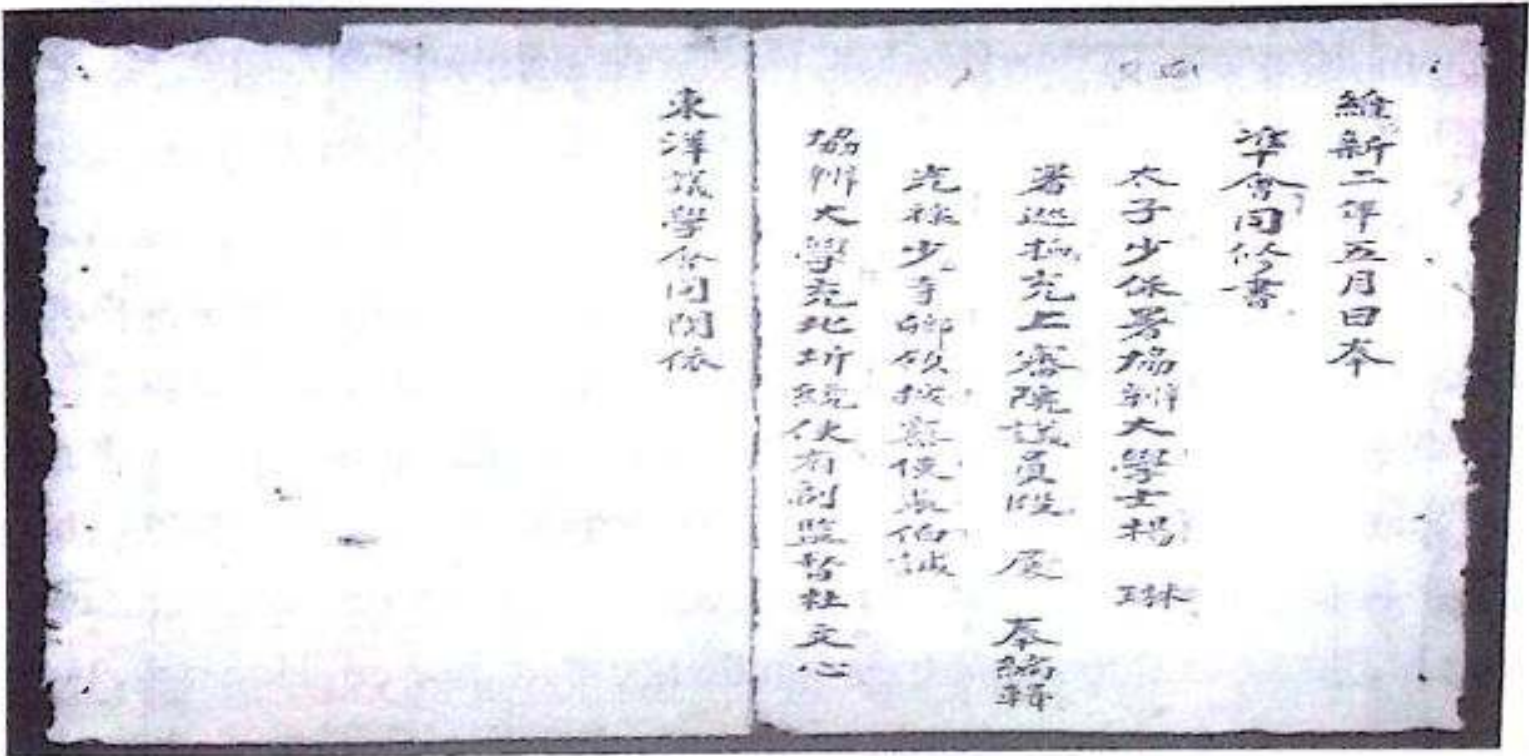 維新二年五月日本
準會同修書
太子少保署協辦大學士楊 琳
署巡撫充上審院議員段 展 奉編輯
光祿少寺卿領按察使吳伯誠
協辦大學充北圻統使府副監督杜文心
東洋議學會同関依